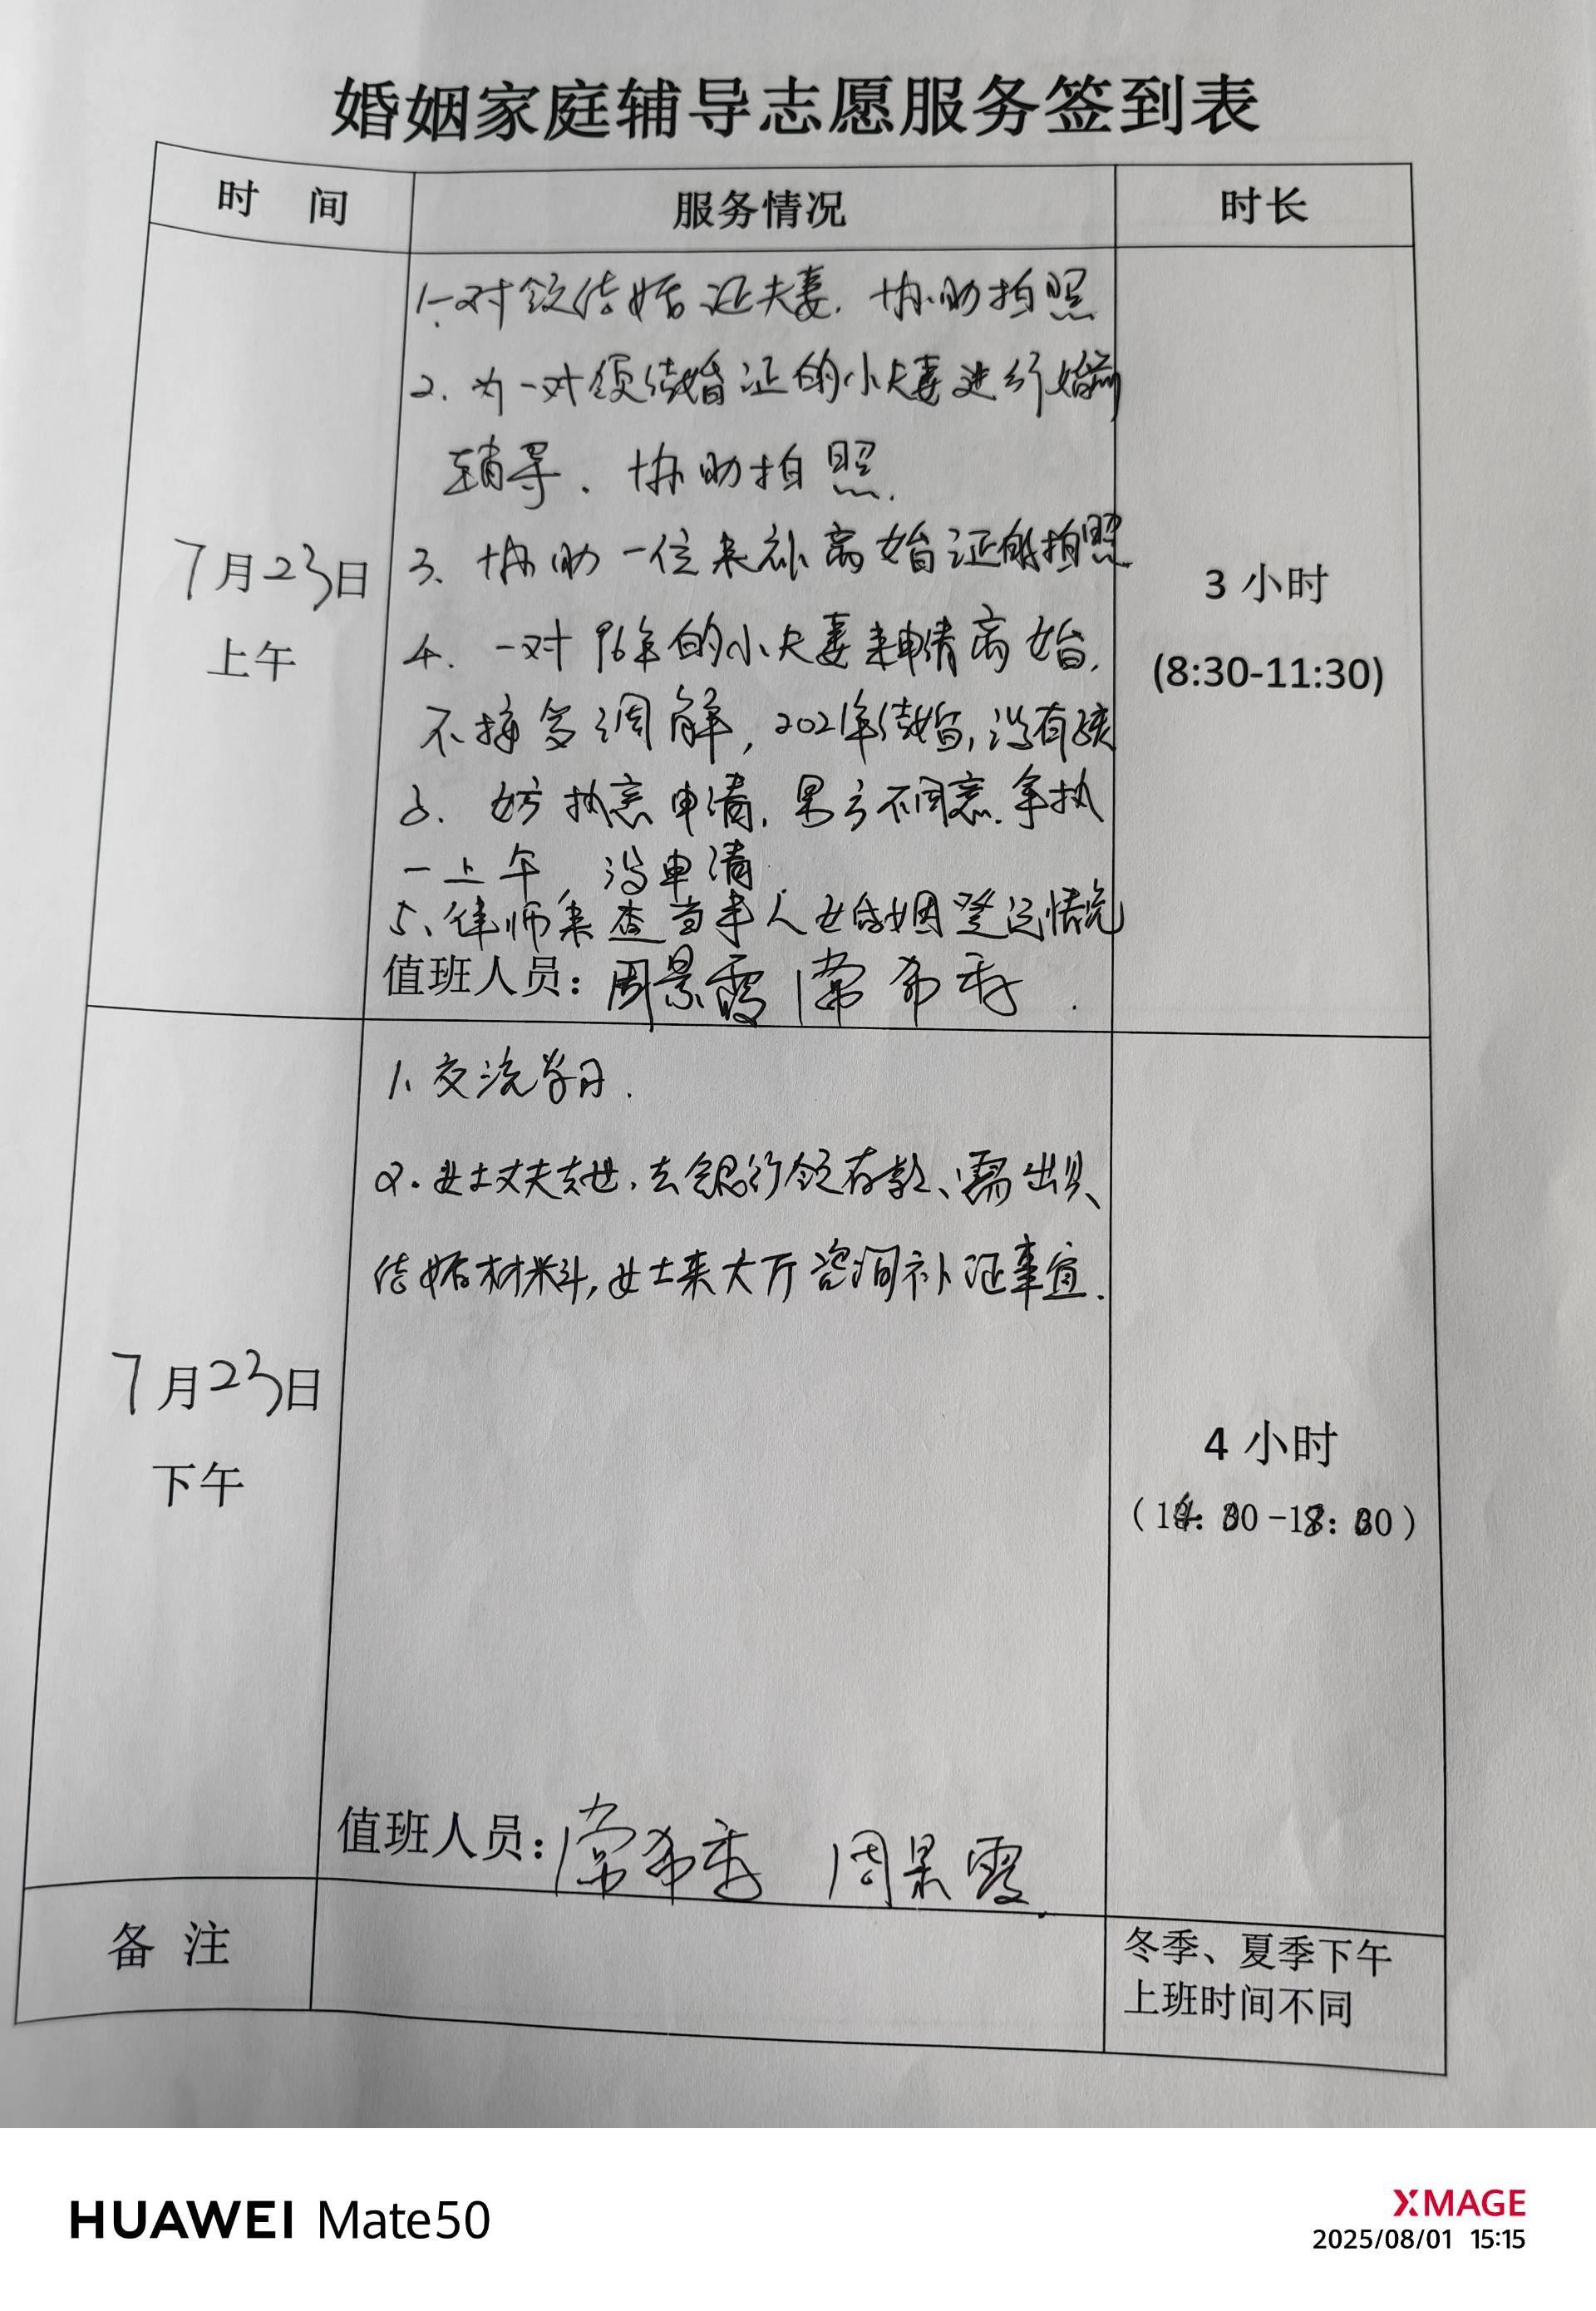 婚姻家庭辅导志愿服务签到表
时 间 服务情况 时长
1.一对领结婚证夫妻.协助拍照
2.为一对领结婚证的小夫妻进行婚前
辅导.协助拍照.
3、协助一位来补离婚证的拍照
7月23日
上午
3 小时
(8:30-11:30)
4.一对96年的小夫妻来申请离婚.
不接受调解,2021年结婚,没有孩
子.女方执意申请.男方不同意.争执
一上午,没申请.
5、律师来查当事人婚姻登记情况
值班人员:周景霞 常希季
1、交流学习.
2.女士丈夫去世,去银行领存款、需出具
结婚材料,女士来大厅咨询补证事宜.
7月23日
下午
4 小时
值班人员:常希季 周景霞
备 注
冬季、夏季下午
上班时间不同
HUAWEI Mate50
XMAGE
2025/08/01 15:15